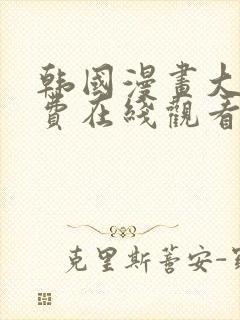 韩國漫畫大
費在綫觀看
克里斯蒂安-